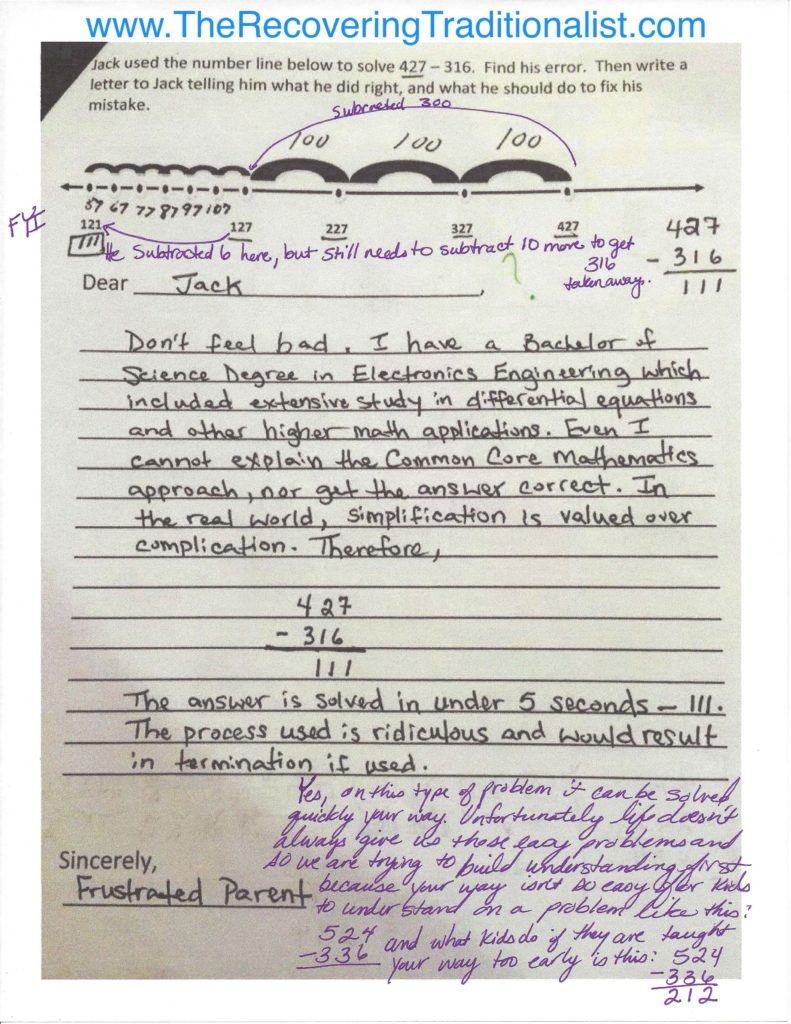 www.TheRecoveringTraditionalist.com
Jack used the number line below to solve 427 – 316. Find his error. Then write a
letter to Jack telling him what he did right, and what he should do to fix his
mistake.
Subtracted 300
100 100 100
57 67 77 87 97 107
121 127 227 327 427
FYI
111
He subtracted 6 here, but still needs to subtract 10 more to get
316
taken away.
?
427
- 316
111
Dear Jack,
Don't feel bad. I have a Bachelor of
Science Degree in Electronics Engineering which
included extensive study in differential equations
and other higher math applications. Even I
cannot explain the Common Core Mathematics
approach, nor get the answer correct. In
the real world, simplification is valued over
complication. Therefore,
427
- 316
111
The answer is solved in under 5 seconds – 111.
The process used is ridiculous and would result
in termination if used.
Sincerely,
Frustrated Parent
Yes, on this type of problem it can be solved
quickly your way. Unfortunately life doesn't
always give us those easy problems and
so we are trying to build understanding first
because your way isn't so easy for kids
to understand on a problem like this:
524
-336
and what kids do if they are taught
your way too early is this: 524
-336
212